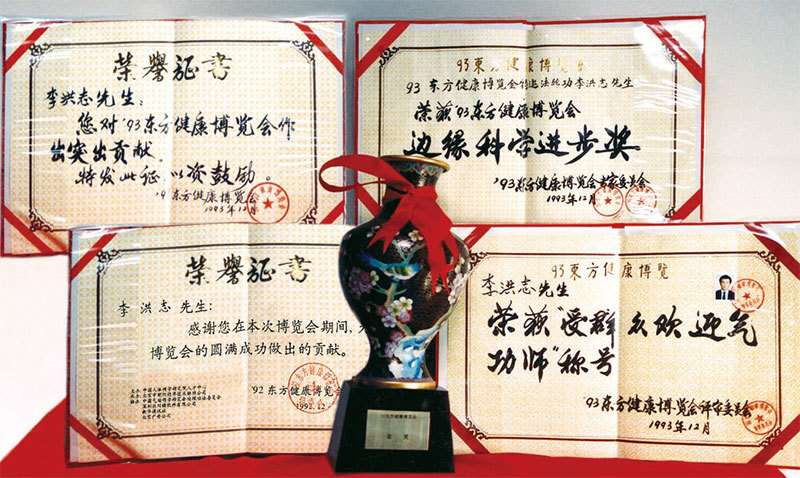 荣誉证书
李洪志先生：
您对'93东方健康博览会作
出突出贡献.
特发此证,以资鼓励。
1993年12月
93東方健康博览会
93 东方健康博览会特邀法轮功李洪志先生
荣获'93东方健康博览会
边缘科学进步奖
'93东方健康博览会专家委员会
1993年12月
荣誉证书
李洪志 先生：
感谢您在本次博览会期间,
博览会的圆满成功做出的贡献。
'92 东方健康博览会
1992.12
93東方健康博览
李洪志先生
荣获“受群众欢迎气
功师”称号
'93东方健康博览会评审委员会
1993年12月
金奖